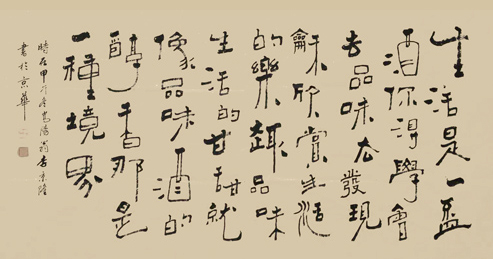 生活是一盃
酒你得學會
去品味去發現
龢欣賞生活
的樂趣品味
生活的甘甜就
像品味酒的
醇香那是
一種境界
時在甲
書於京華